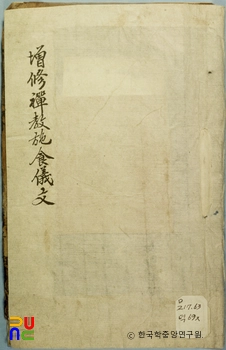 增修禪教施食儀文
217.63
ⓒ 한국학중앙연구원